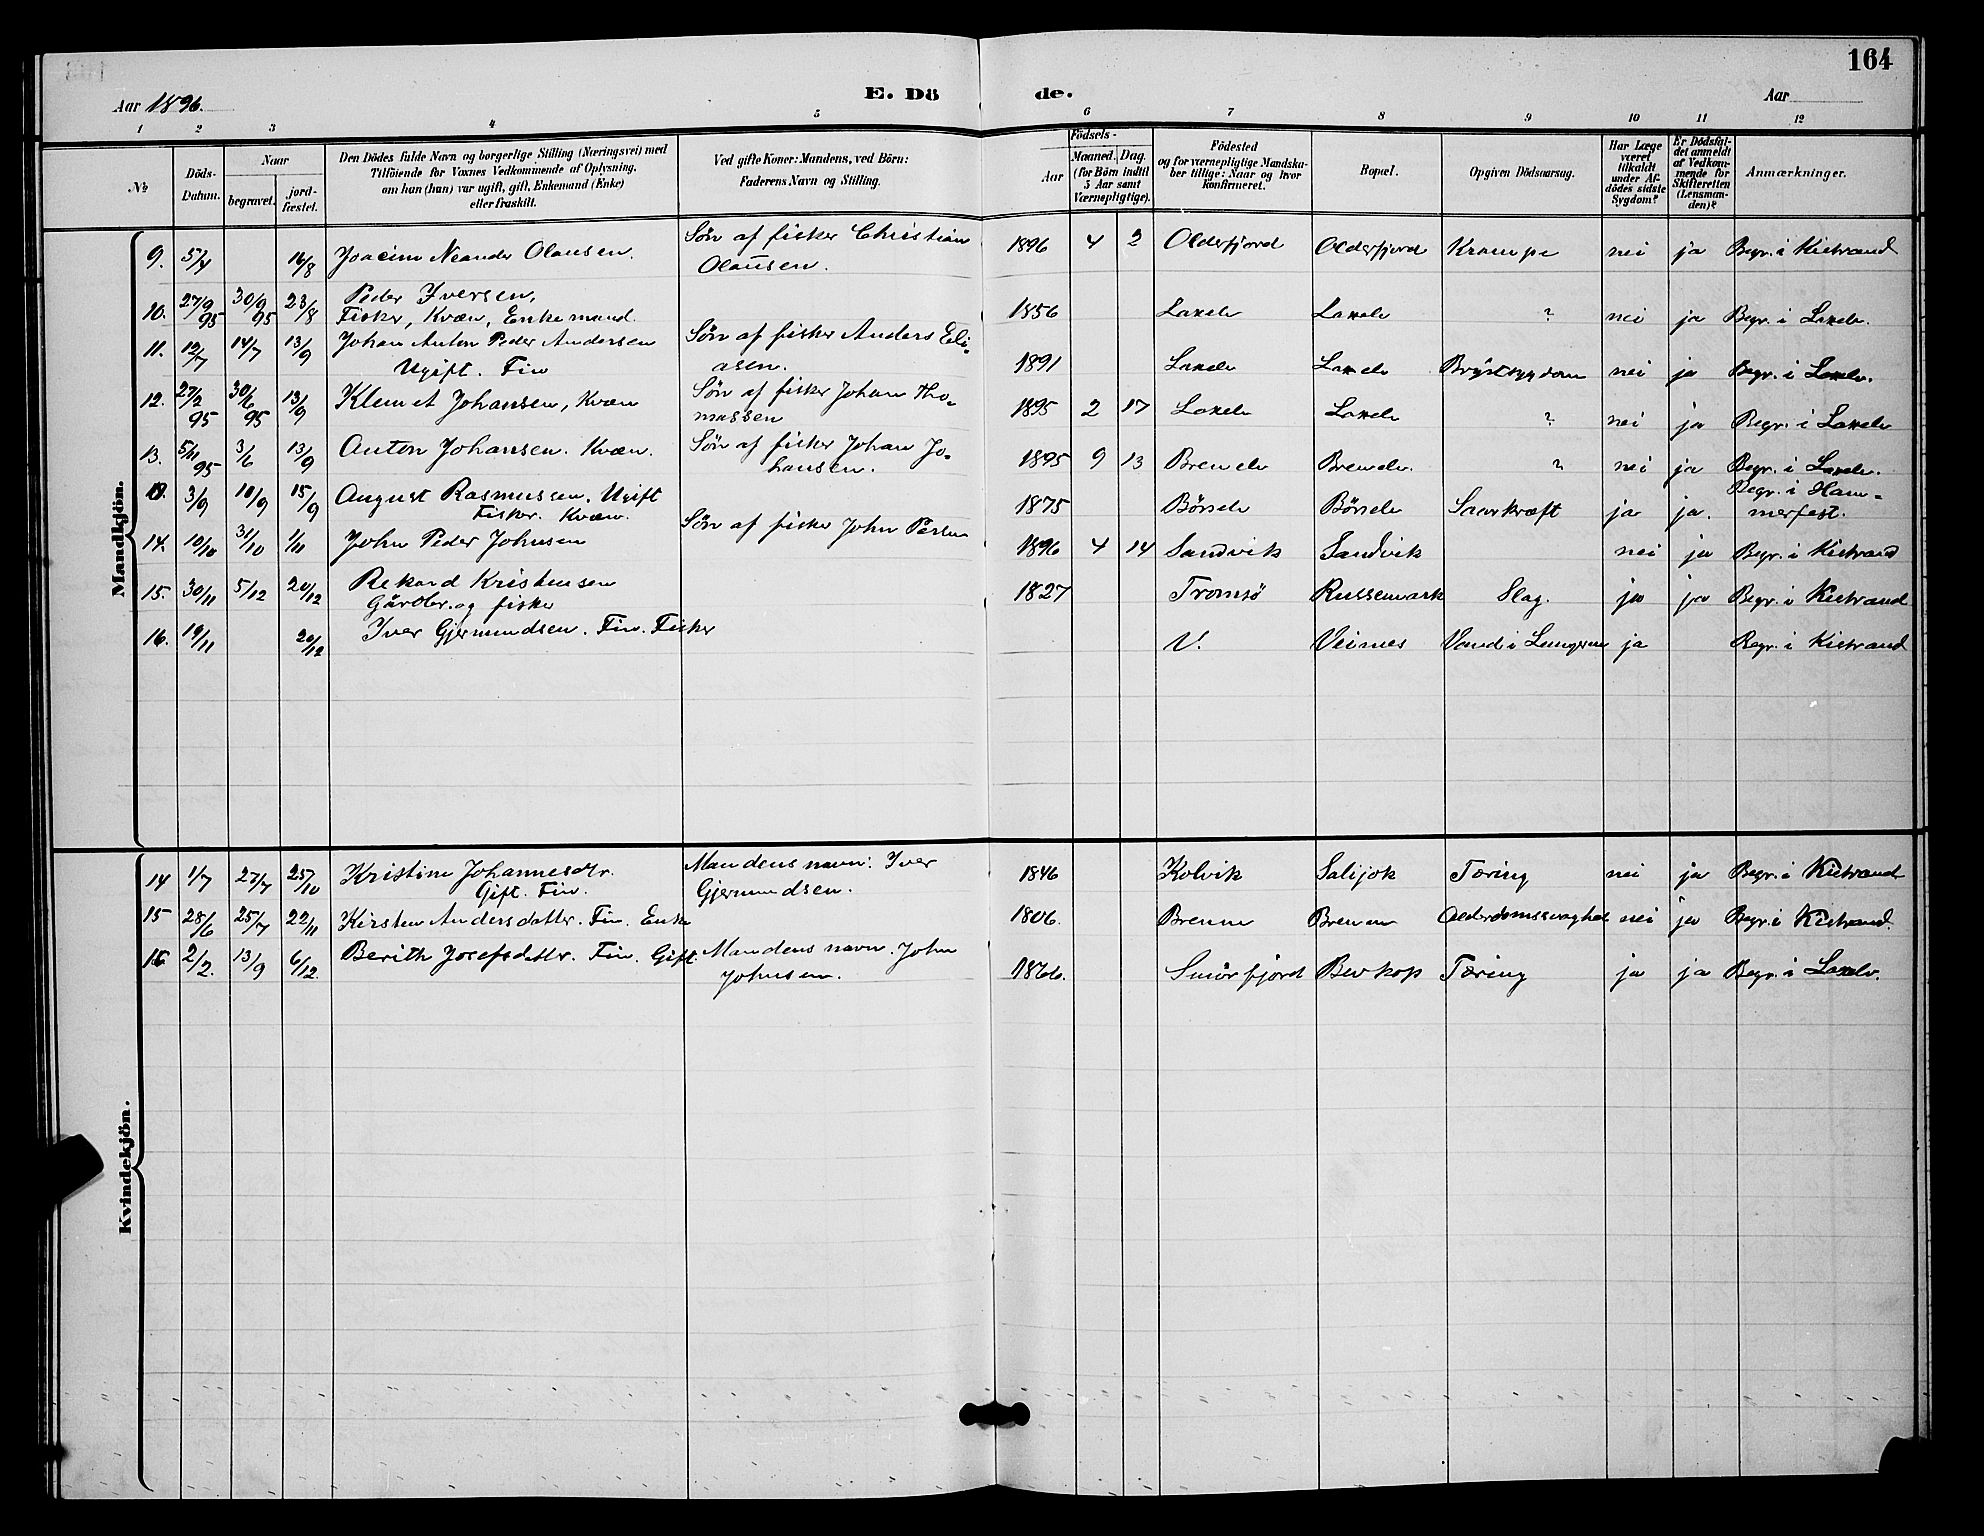 164
Aar 1896.
E. Dö de.
Aar
1 2 3 4 5 6 7 8 9 10 11 12
№
Döds-Datum.
Naar
begravet.
jord-fæstet.
Den Dödes fulde Navn og borgerlige Stilling (Næringsvei) med
Tilföiende for Voxnes Vedkommende af Oplysning,
om han (hun) var ugift, gift, Enkemand (Enke)
eller fraskilt.
Ved gifte Koner: Mandens, ved Börn:
Faderens Navn og Stilling.
Födsels-
Aar
Maaned. Dag.
(for Börn indtil
5 Aar samt
Værnepligtige).
Födested
og for værnepligtige Mandska-
ber tillige: Naar og hvor
konfirmeret.
Bopæl.
Opgiven Dödsaarsag.
Har Læge
været
tilkaldt
under Af-
dödes sidste
Sygdom?
Er Dödsfal-
det anmeldt
af Vedkom-
mende for
Skifteretten
(Lensman-
den)?
Anmærkninger.
Mandkjön.
9. 5/4 16/8 Joacim Neander Olausen. Søn af fisker Christian
Olausen. 1896 4 2 Olderfjord Olderfjord Krampe nei ja Begr. i Kistrand
10. 27/9 95 30/9 95 23/8 Peder Iversen,
Fisker, Kvæn, Enkemand. 1856 Laxelv Laxelv ? nei ja Begr. i Laxelv.
11. 12/7 14/7 13/9 Johan Anton Peder Andersen Søn af fisker Anders Eli-
Ugift. Fin asen. 1891 Laxelv Laxelv Brystsygdom nei ja Begr. i Laxelv.
12. 27/2 95 30/6 95 13/9 Klemet Johansen, Kvæn Søn af fisker Johan Tho-
massen 1895 2 17 Laxelv Laxelv ? nei ja Begr. i Laxelv
13. 5/11 95 3/6 13/9 Anton Johansen. Kvæn. Søn af fisker Johan Jo-
hansen. 1895 9 13 Brenelv Brenelv. ? nei ja Begr. i Laxelv.
3/9 10/9 15/9 August Rasmussen. Ugift
Fisker. Kvæn. 1875 Børselv Børselv Saarkræft ja ja. Begr. i Ham-
merfest.
14. 10/10 31/10 1/11 John Peder Johnsen Søn af fisker John Persen 1896 4 14 Sandvik Sandvik nei ja Begr. i Kistrand
15. 30/11 5/12 20/12 Rekard Kristensen
Gårdbr. og fisker 1827 Tromsö Russemark Slag. ja ja Begr. i Kistrand
16. 19/11 20/12 Iver Gjermundsen. Fin. Fisker V. Veines Vand i Lungerne ja Begr. i Kistrand
Kvindekjön.
14 1/7 27/7 25/10 Kristine Johannesdtr. Mandens navn: Iver
Gift. Fin. Gjermundsen. 1846 Kolvik Salijok Tæring nei ja Begr. i Kistrand
15 28/6 25/7 22/11 Kirsten Andersdatter. Fin. Enke 1806. Brenna Brenna Alderdomssvaghed nei ja Begr. i Kistrand.
16 2/2. 13/9 6/12. Berith Josefsdattr. Fin. Gift. Mandens navn. John
Johnsen. 1866. Smörfjord Bevkop Tæring ja ja Begr. i Laxelv.